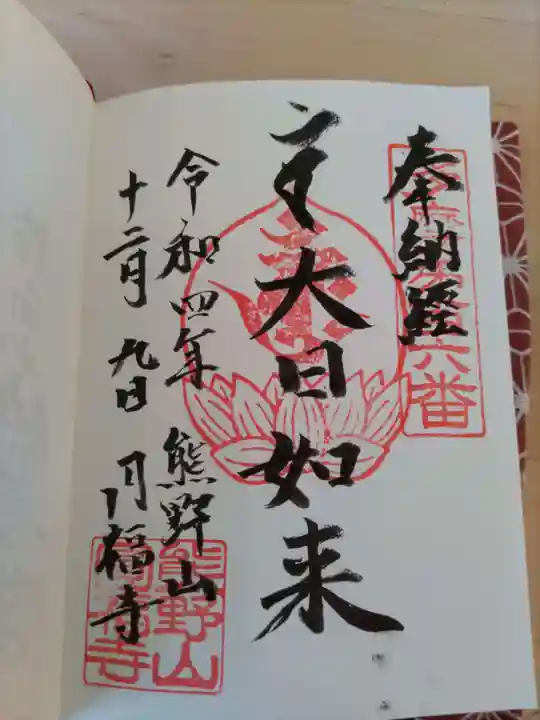 奉納経
大日如来
令和四年
十二月九日
熊野山
円福寺
六番
熊野山